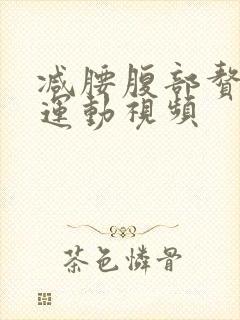 减腰腹部赘
運動視頻
茶色憐骨